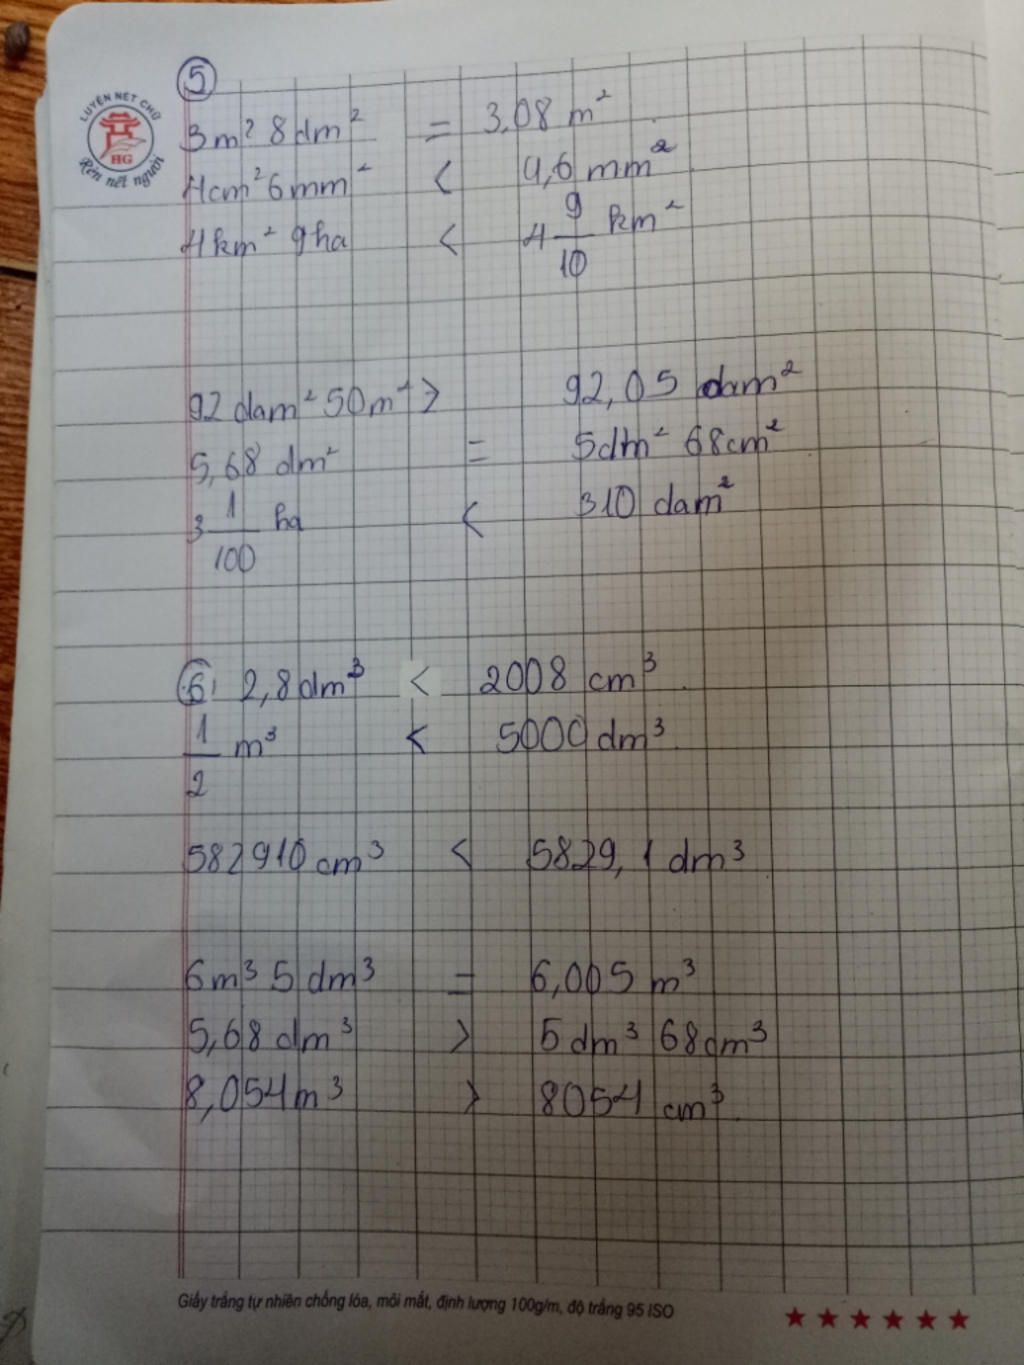 LUYỆN NÉT CHỮ
HG
Rèn nết người
5
3m² 8dm² = 3,08 m²
4cm² 6mm² < 4,6 mm²
4km² 9ha < 4 9/10 km²
92 dam² 50m² > 92,05 dam²
5,68 dm² = 5dm² 68cm²
3 1/100 ha < 310 dam²
6) 2,8 dm³ < 2008 cm³
1/2 m³ < 5000 dm³
582910 cm³ < 5829,1 dm³
6m³ 5 dm³ = 6,005 m³
5,68 dm³ > 5 dm³ 68cm³
8,054m³ > 8054 cm³
Giấy trắng tự nhiên chống lóa, mỏi mắt, định lượng 100g/m, độ trắng 95 ISO